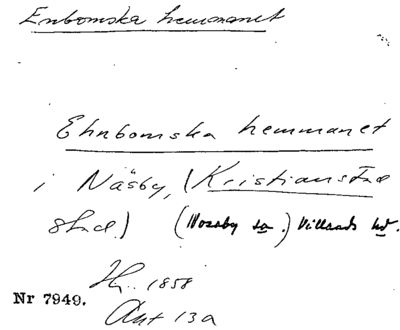 Enbomska hemmanet
Ehnbomska hemmanet
i Näsby, (Kristianstad
stad) (Nosaby sn.) Villands hd.
Hn. 1858
Nr 7949.
Ant 13a